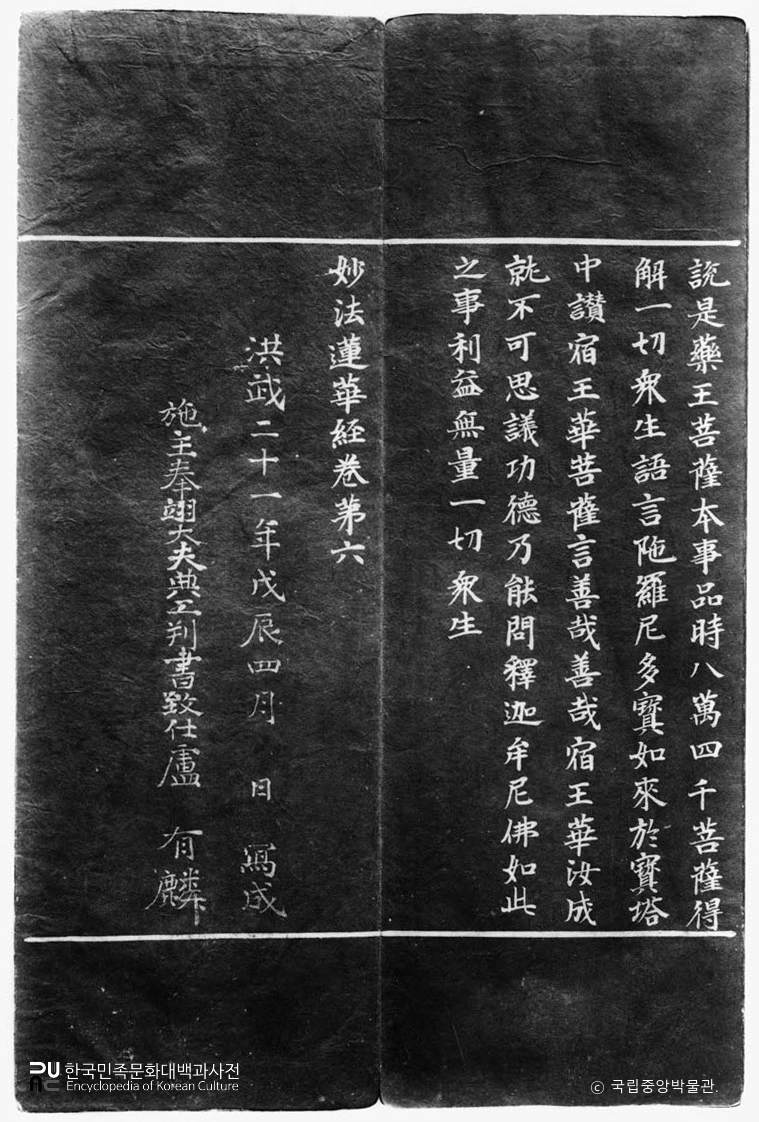 說是藥王菩薩本事品時八萬四千菩薩得
解一切衆生語言陁羅尼多寶如來於寶塔
中讃宿王華菩薩言善哉善哉宿王華汝成
就不可思議功德乃能問釋迦牟尼佛如此
之事利益無量一切衆生
妙法蓮華経卷第六
洪武二十一年戊辰四月 日 寫成
施主奉翊大夫典工判書致仕盧 有麟
한국민족문화대백과사전
Encyclopedia of Korean Culture
ⓒ 국립중앙박물관.